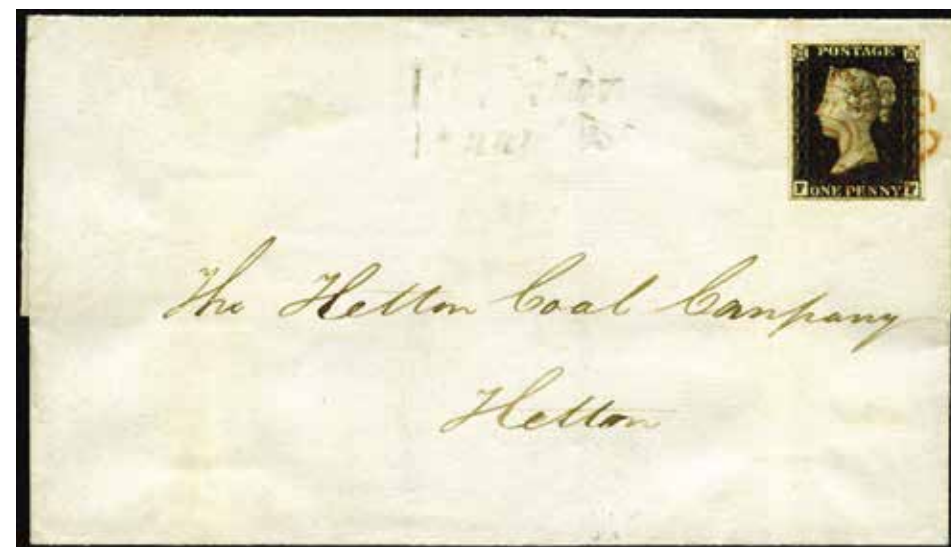 POSTAGE
F ONE PENNY F
The Hetton Coal Company
Hetton